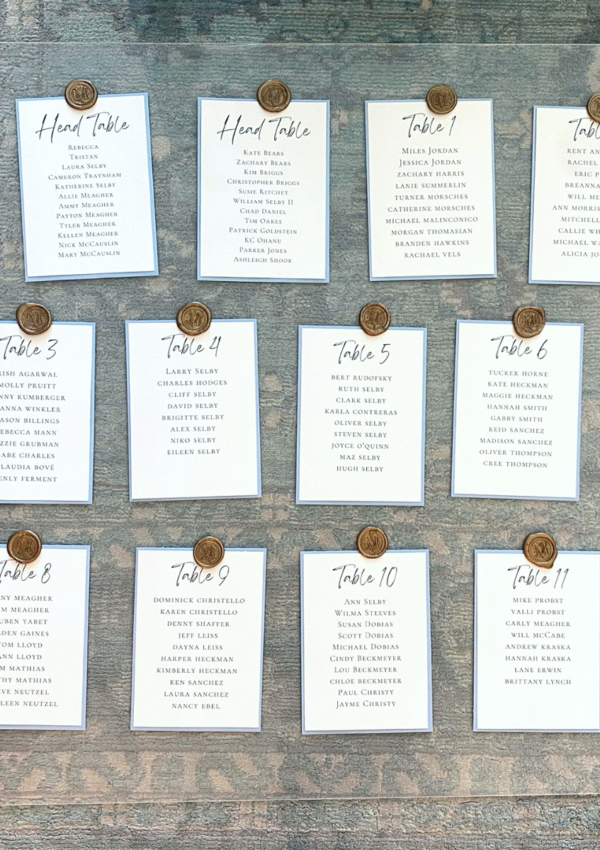 Head Table
Rebecca
Tristan
Laura Selby
Cameron Traynham
Katherine Selby
Allie Meagher
Ammy Meagher
Payton Meagher
Tyler Meagher
Kellen Meagher
Nick McCauslin
Mary McCauslin
Head Table
Kate Bears
Zachary Bears
Kim Briggs
Christopher Briggs
Sume Ritchey
William Selby II
Chad Daniel
Tim Oakes
Patrick Goldstein
KC Ohanu
Parker Jones
Ashleigh Shook
Table 1
Miles Jordan
Jessica Jordan
Zachary Harris
Lanie Summerlin
Turner Morsches
Catherine Morsches
Michael Malinconico
Morgan Thomasian
Branden Hawkins
Rachael Vels
Kent
Rachel
Eric
Will
Ann Morris
Michael
Alicia
Table 3
Agarwal
Molly Pruitt
Kumberger
Winkler
Billings
Mann
Grubman
Charles
Bové
Ferment
Table 4
Larry Selby
Charles Hodges
Cliff Selby
David Selby
Brigitte Selby
Alex Selby
Niko Selby
Eileen Selby
Table 5
Bert Rudofsky
Ruth Selby
Clark Selby
Karla Contreras
Oliver Selby
Steven Selby
Joyce O'Quinn
Maz Selby
Hugh Selby
Table 6
Tucker Horne
Kate Heckman
Maggie Heckman
Hannah Smith
Gabby Smith
Reid Sanchez
Madison Sanchez
Oliver Thompson
Cree Thompson
Table 8
Meagher
Meagher
Yabet
Gaines
Lloyd
Lloyd
Mathias
Mathias
Neutzel
Neutzel
Table 9
Dominick Christello
Karen Christello
Denny Shaffer
Jeff Leiss
Dayna Leiss
Harper Heckman
Kimberly Heckman
Ken Sanchez
Laura Sanchez
Nancy Ebel
Table 10
Ann Selby
Wilma Steeves
Susan Dobias
Scott Dobias
Michael Dobias
Cindy Beckmeyer
Lou Beckmeyer
Chloe Beckmeyer
Paul Christy
Jayme Christy
Table 11
Mike Probst
Valli Probst
Carly Meagher
Will McCabe
Andrew Kraska
Hannah Kraska
Lane Erwin
Brittany Lynch